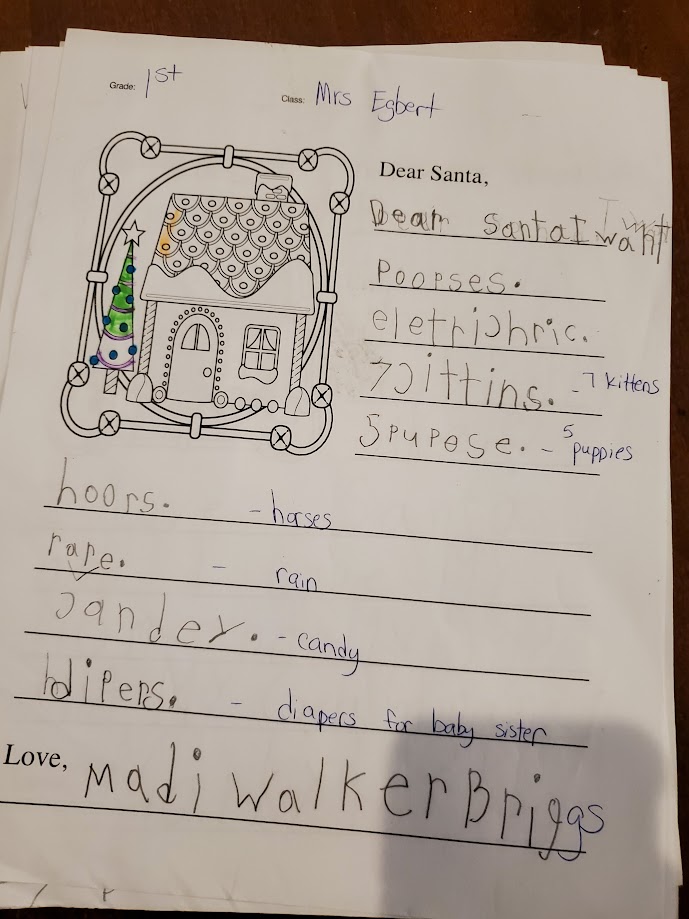 Grade: 1st
Class: Mrs Egbert
Dear Santa,
Dear Santa I want
Poopses.
eletrichric.
7 cittins. - 7 kittens
5 pupose. - 5 puppies
hoors. - horses
rare. - rain
candey. - candy
dipers. - diapers for baby sister
Love, Madi Walker Briggs